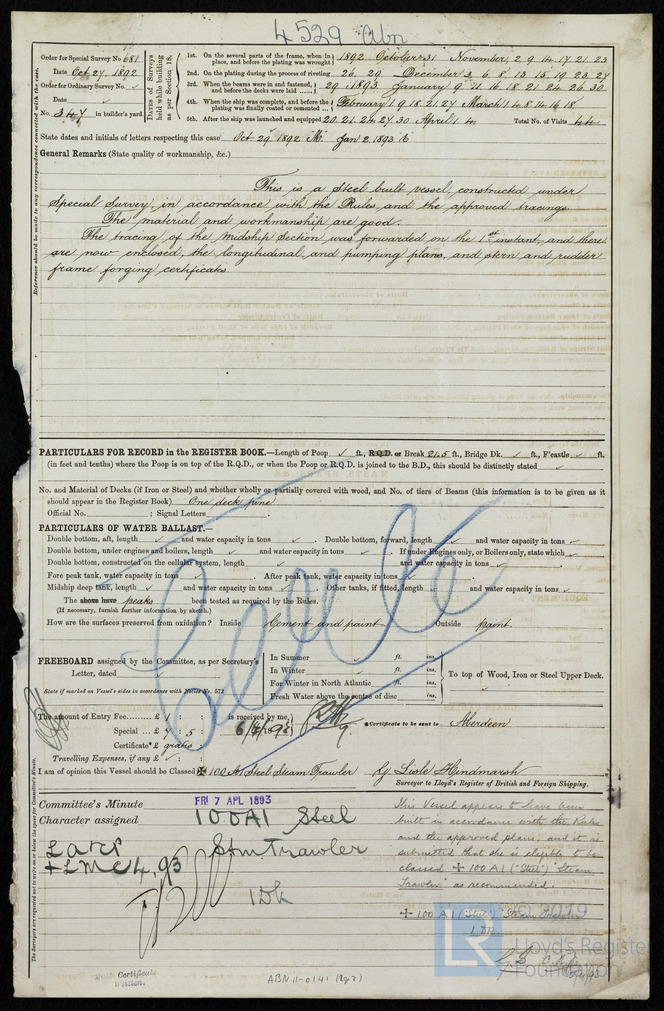 4529 Abn
Order for Special Survey No. 681
Date Oct 27, 1892
Order for Ordinary Survey No.
Date
No. 347 in builder's yard.
Dates of Surveys held while building as per Section 18.
1st. On the several parts of the frame, when in place, and before the plating was wrought 1892 October 31 November, 2 9 14 17 21 23
2nd. On the plating during the process of riveting 26, 29 December 3 6 8 13 15 19 23 27
3rd. When the beams were in and fastened, and before the decks were laid 29 1893 January 9 11 16 18 21 24 26 30
4th. When the ship was complete, and before the plating was finally coated or cemented February 1 9 18 21 27 March 1 4 8 14 16 18
5th. After the ship was launched and equipped 20 21 24 27 30 April 1 4 Total No. of Visits 44
State dates and initials of letters respecting this case Oct 29 1892 M. Jan 2. 1893
General Remarks (State quality of workmanship, &c.)
This is a Steel built vessel, constructed under
Special Survey, in accordance with the Rules and the approved tracings.
The material and workmanship are good.
The tracing of the Midship Section was forwarded on the 1st instant, and there
are now enclosed, the longitudinal, and pumping plans, and stern and rudder
frame forging certificates.
PARTICULARS FOR RECORD in the REGISTER BOOK.—Length of Poop ✓ ft., R.Q.D. or Break 21.5 ft., Bridge Dk. ✓ ft., F'castle ✓ ft.
(in feet and tenths) where the Poop is on top of the R.Q.D., or when the Poop or R.Q.D. is joined to the B.D., this should be distinctly stated
No. and Material of Decks (if Iron or Steel) and whether wholly or partially covered with wood, and No. of tiers of Beams (this information is to be given as it
should appear in the Register Book) One deck pine
Official No. ; Signal Letters
PARTICULARS OF WATER BALLAST.—
Double bottom, aft, length ✓ and water capacity in tons ✓ . Double bottom, forward, length ✓ and water capacity in tons ✓
Double bottom, under engines and boilers, length ✓ and water capacity in tons ✓ . If under Engines only, or Boilers only, state which ✓
Double bottom, constructed on the cellular system, length ✓ and water capacity in tons ✓
Fore peak tank, water capacity in tons ✓ . After peak tank, water capacity in tons ✓
Midship deep tank, length ✓ and water capacity in tons ✓ Other tanks, if fitted, length ✓ and water capacity in tons ✓
The above have peaks been tested as required by the Rules.
(If necessary, furnish further information by sketch.)
How are the surfaces preserved from oxidation? Inside Cement and paint Outside paint
FREEBOARD assigned by the Committee, as per Secretary's
Letter, dated
State if marked on Vessel's sides in accordance with Notice No. 572
In Summer ft. ins.
In Winter ft. ins.
For Winter in North Atlantic ft. ins.
Fresh Water above the centre of disc ins.
To top of Wood, Iron or Steel Upper Deck.
The amount of Entry Fee...... £ 1 : : is received by me,
Special ... £ 7 : 5 : 6/4/1893
Certificate* £ gratis
Travelling Expenses, if any £
*Certificate to be sent to Aberdeen
I am of opinion this Vessel should be Classed ✠ 100 A1 Steel Steam Trawler G Lisle Hindmarsh
Surveyor to Lloyd's Register of British and Foreign Shipping.
Committee's Minute FRI 7 APL 1893
Character assigned 100A1 Steel
Stm Trawler
+LMC 4, 93
1 Dk
This Vessel appears to have been
built in accordance with the Rules
and the approved plans, and it is
submitted that she is eligible to be
classed ✠ 100 A1 ("Steel") "Steam
Trawler" as recommended.
✠ 100 A1 ("Steel") "Steam Trawler"
1 Dk.
LR © 2019
Lloyd's Register
Foundation
Certificate
Written.
ABN 11-0141 (2g2)